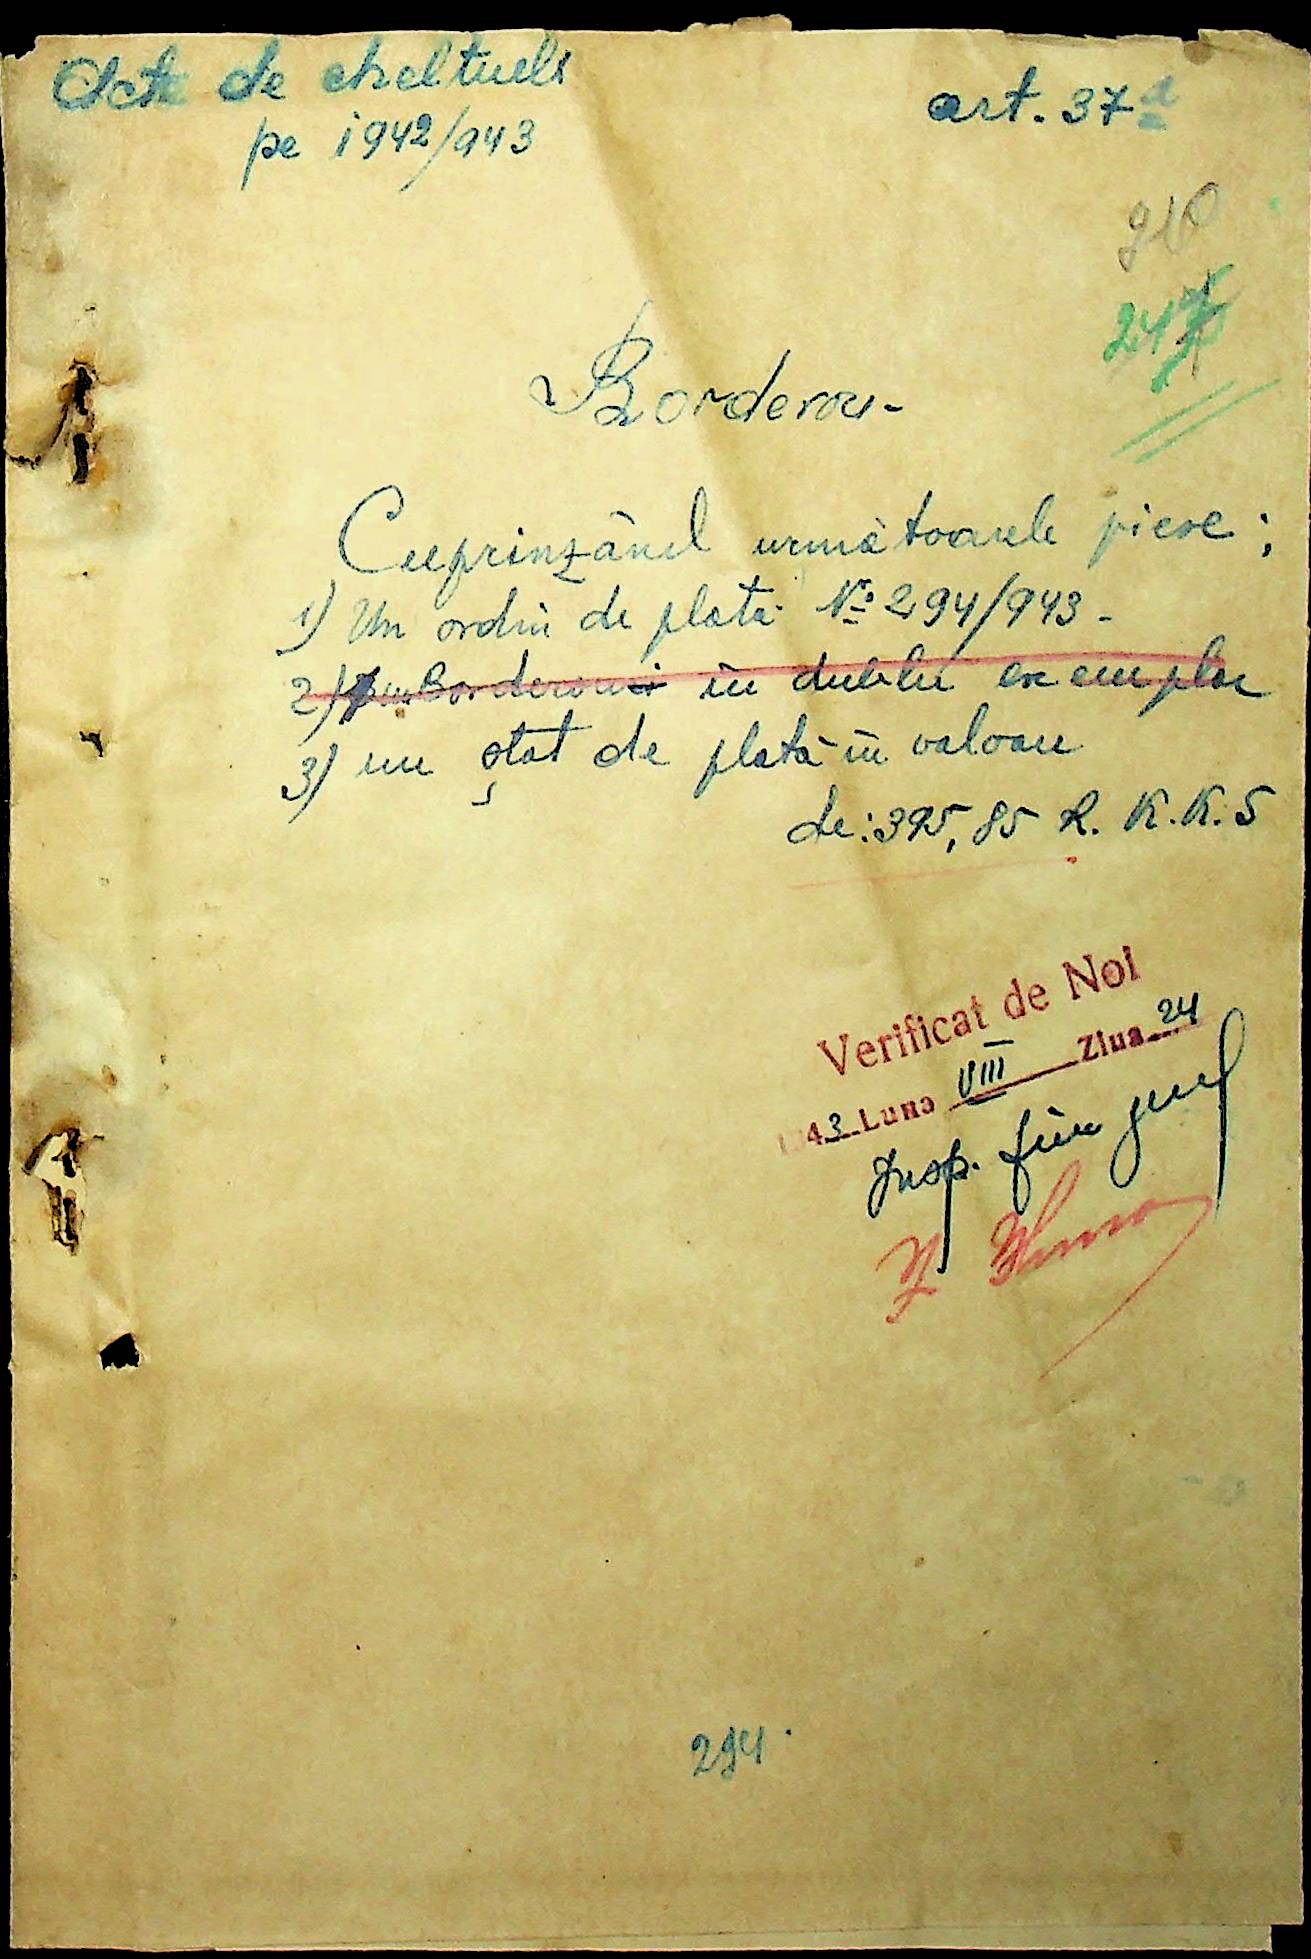 Acte de cheltueli
pe 1942/943
art. 37
Borderou-
Cuprinzând următoarele piese;
1) Un ordin de plată No 294/943-
2) Borderouri în dublu exemplar
3) un ștat de plată în valoare
de: 395,85 R. K. K. S
Verificat de Noi
1943 Luna VIII Ziua 24
Insp. fin
294.